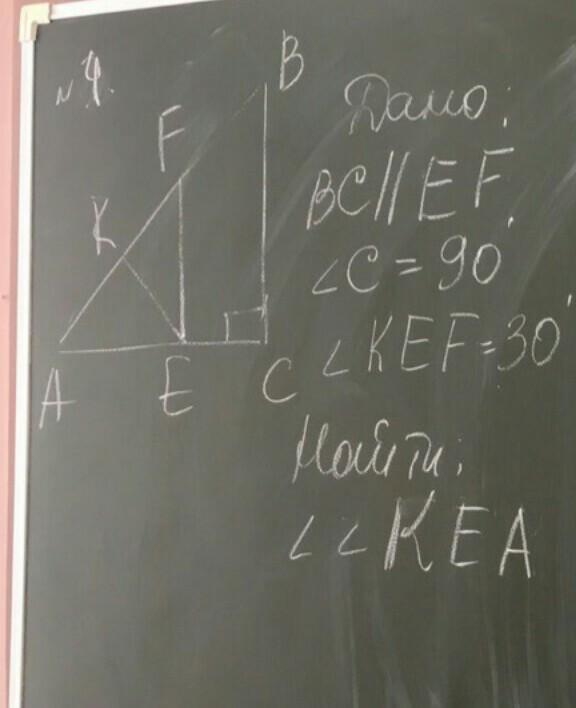 №4.
B
F
K
A
E
C
Дано:
BC||EF,
∠C=90
∠KEF=30
Найти:
∠∠KEA